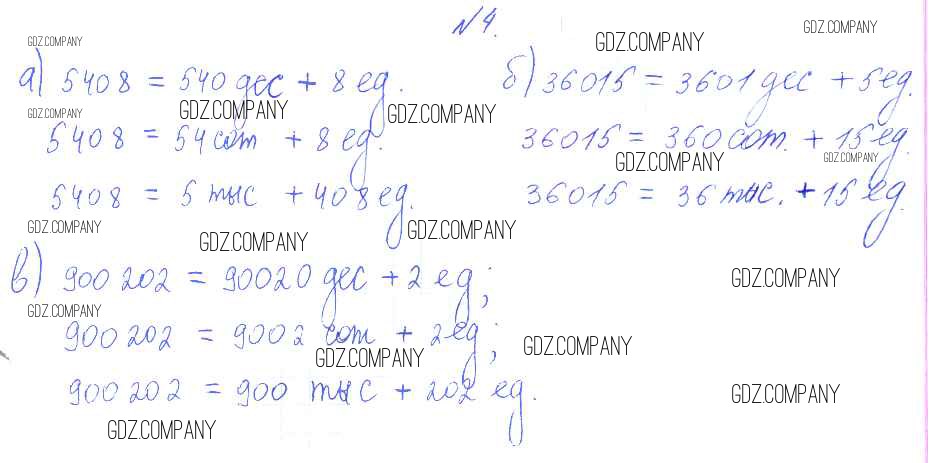 № 4.
GDZ.COMPANY GDZ.COMPANY GDZ.COMPANY
а) 5408 = 540 дес + 8 ед. б) 36015 = 3601 дес + 5 ед.
GDZ.COMPANY GDZ.COMPANY GDZ.COMPANY
5408 = 54 сот + 8 ед. 36015 = 360 сот. + 15 ед.
GDZ.COMPANY GDZ.COMPANY
5408 = 5 тыс + 408 ед. 36015 = 36 тыс. + 15 ед.
GDZ.COMPANY GDZ.COMPANY GDZ.COMPANY
в) 900 202 = 90020 дес + 2 ед;
GDZ.COMPANY
GDZ.COMPANY
900 202 = 9002 сот + 2 ед;
GDZ.COMPANY GDZ.COMPANY
900 202 = 900 тыс + 202 ед.
GDZ.COMPANY
GDZ.COMPANY